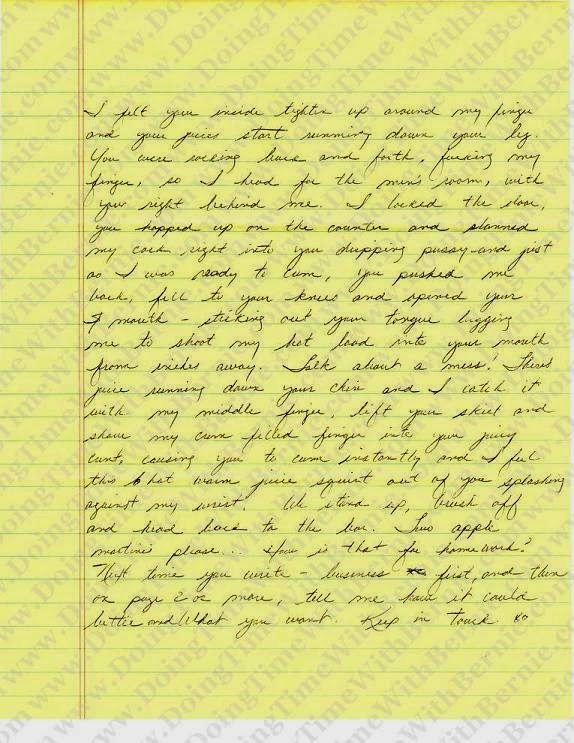 I felt your inside tighten up around my finger
and your juices start running down your leg.
You were rocking back and forth, fucking my
finger, so I head for the men's room, with
your right behind me. I locked the door,
you hopped up on the counter and slammed
my cock right into you dripping pussy and just
as I was ready to cum, you pushed me
back, fell to your knees and opened your
mouth - sticking out your tongue begging
me to shoot my hot load into your mouth
from inches away. Talk about a mess! There's
juice running down your chin and I catch it
with my middle finger, lift your skirt and
shove my cum filled finger into your juicy
cunt, causing you to cum instantly and I feel
this hot warm juice squirt out of you splashing
against my wrist. We stand up, brush off
and head back to the bar. Two apple
martinis please... How is that for homework?
Next time you write - business first, and then
on page 2 or more, tell me how it could
better and What you want. Keep in Touch
www.DoingTimeWithBernie.com